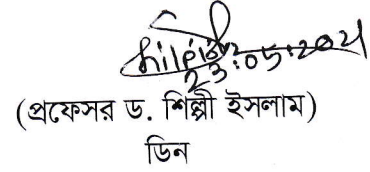 23.05.2021
(প্রফেসর ড. শিল্পী ইসলাম)
ডিন